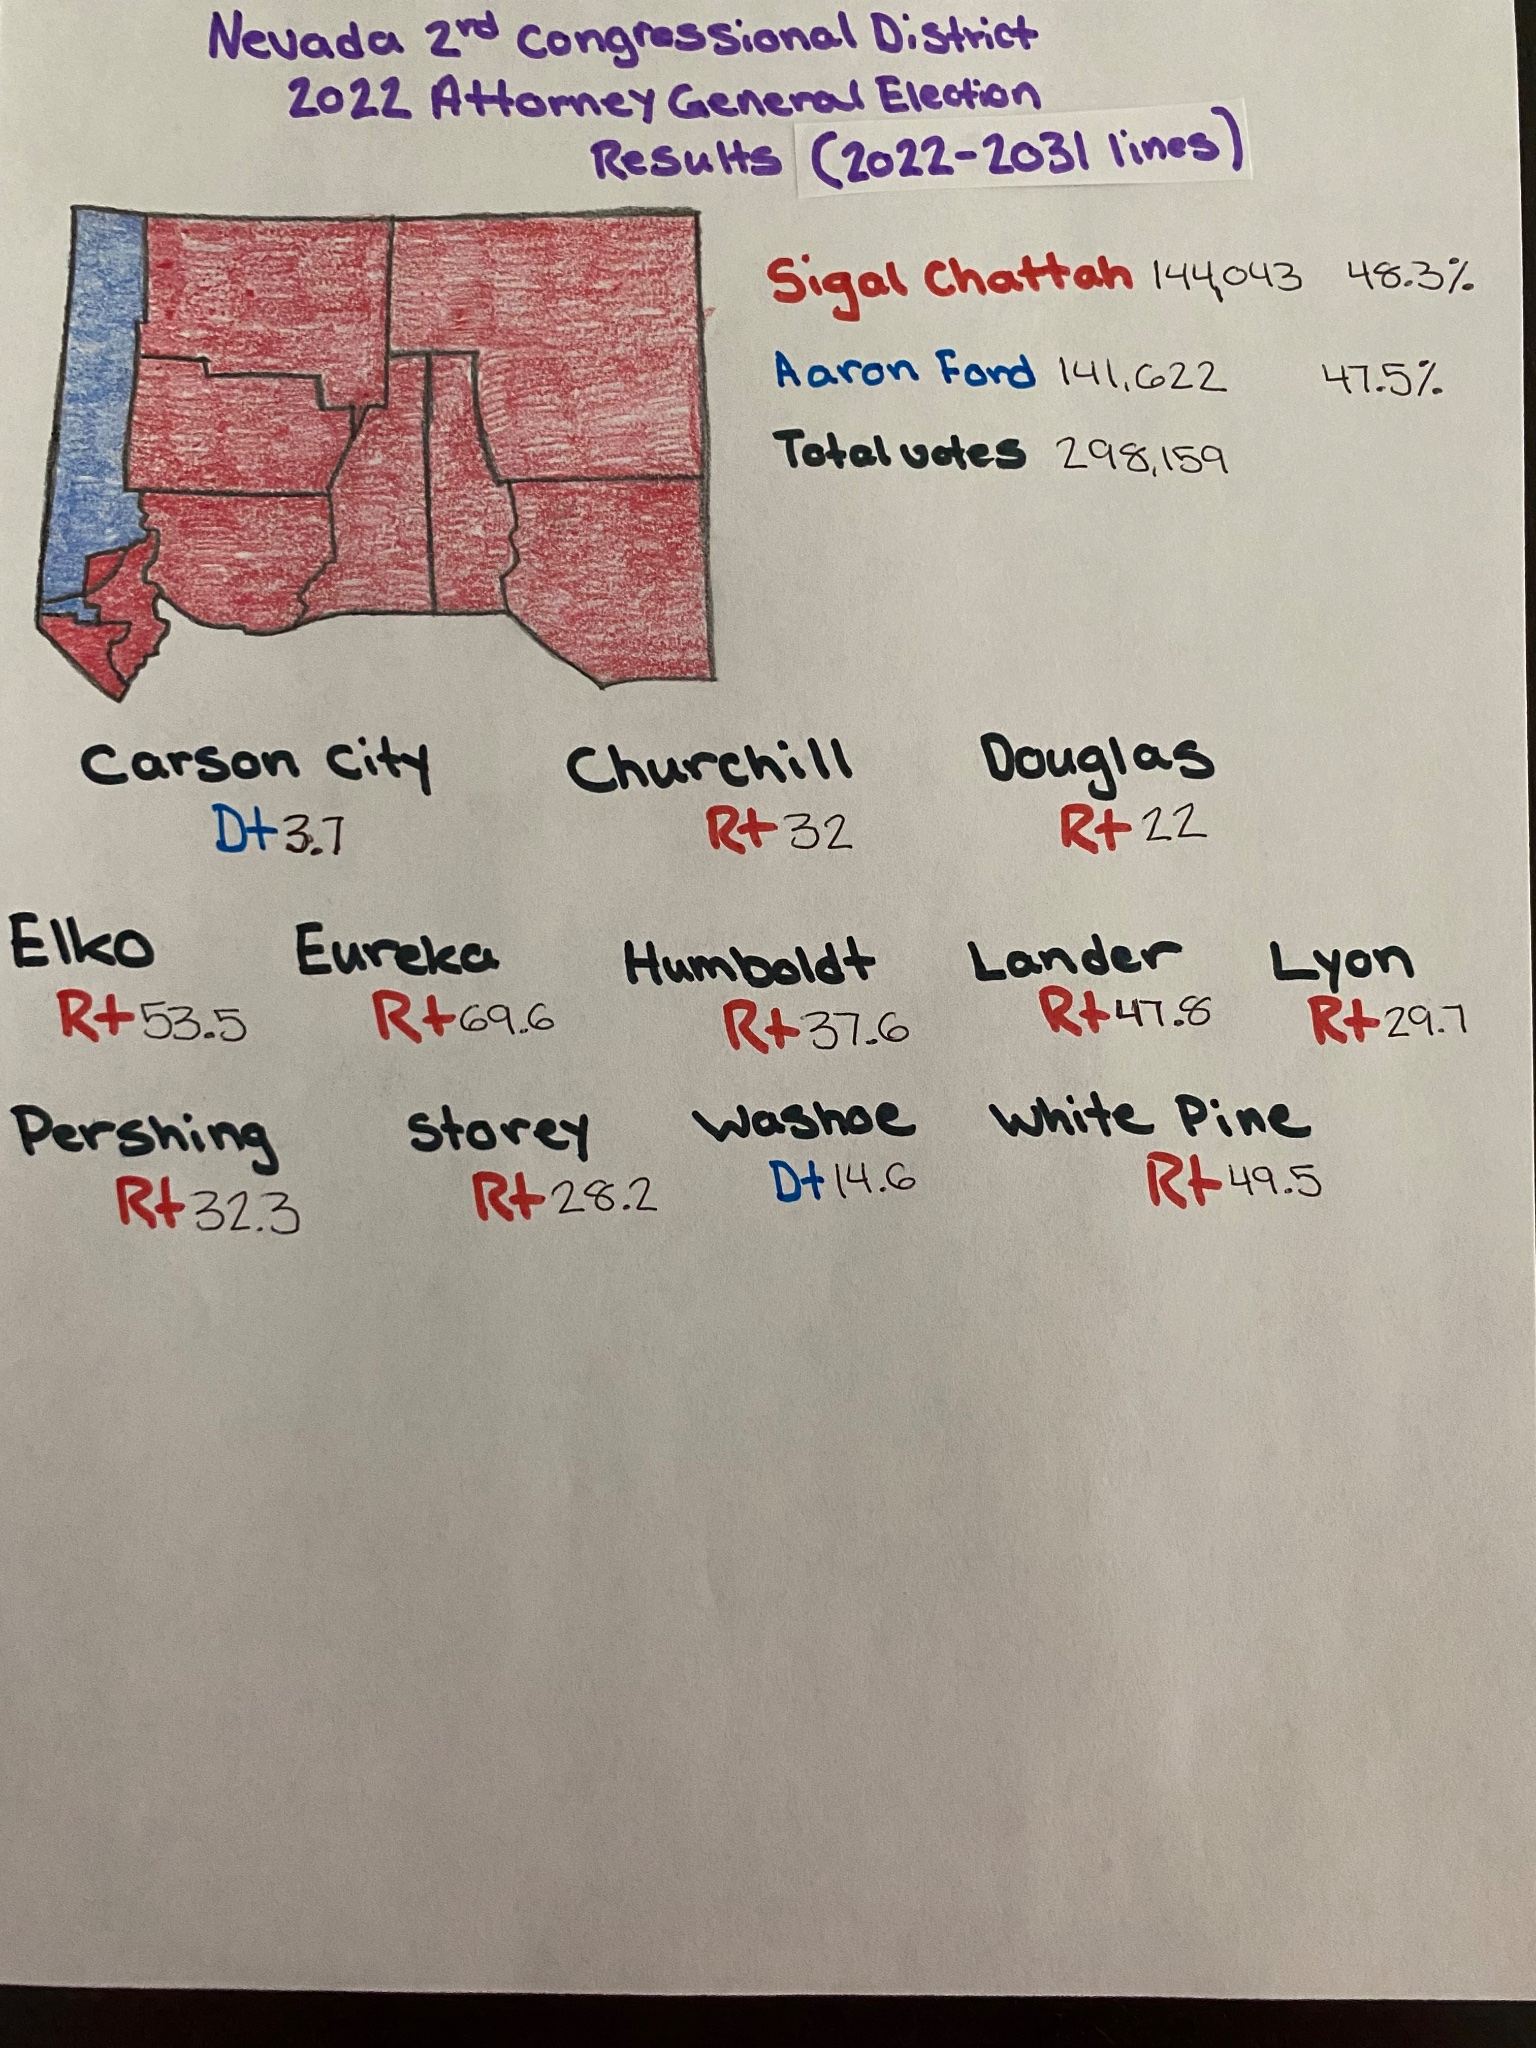 Nevada 2nd Congressional District
2022 Attorney General Election
Results (2022-2031 lines)
Sigal Chattah 144,043 48.3%
Aaron Ford 141,622 47.5%
Total votes 298,159
Carson City Churchill Douglas
D+3.7 R+32 R+22
Elko Eureka Humboldt Lander Lyon
R+53.5 R+69.6 R+37.6 R+47.8 R+29.7
Pershing Storey Washoe White Pine
R+32.3 R+28.2 D+14.6 R+49.5